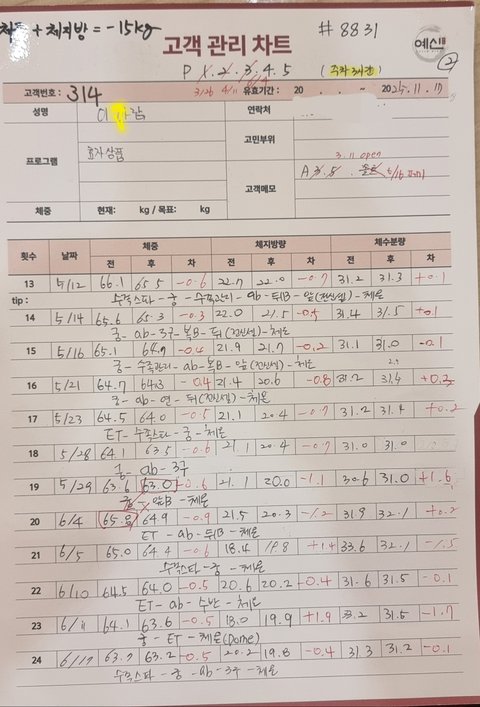 체중 + 체지방 = -15kg
#8831
고객 관리 차트
예신
②
P 1. 2. 3. 4. 5
(주차 3시간)
고객번호 : 314
3/26 4/11
유효기간 : 20 . . ~ 2025.11.17
성명
연락처
프로그램
효자상품
고민부위
3.11 open
고객메모
체중
현재: kg / 목표: kg
횟수 날짜 체중 체지방량 체수분량
전 후 차 전 후 차 전 후 차
13 5/12 66.1 65.5 -0.6 22.7 22.0 -0.7 31.2 31.3 +0.1
tip : 수족스타 - 궁 - 수족관리 - ab - 뒤B - 앞(전신셀) - 체온
14 5/14 65.6 65.3 -0.3 22.0 21.5 -0.5 31.4 31.5 +0.1
궁 - ab - 37 - 복B - 뒤(전신셀) - 체온
15 5/16 65.1 64.7 -0.4 21.9 21.7 -0.2 31.1 31.0 -0.1
궁 - 수족관리 - ab - 복B - 앞(전신셀) - 체온
16 5/21 64.7 64.3 -0.4 21.4 20.6 -0.8 31.2 31.4 +0.2
궁 - ab - 연 - 뒤(전신셀) - 체온
17 5/23 64.5 64.0 -0.5 21.1 20.4 -0.7 31.2 31.4 +0.2
ET - 수족스타 - 궁 - 체온
18 5/28 64.1 63.5 -0.6 21.1 20.4 -0.7 31.0 31.0
궁 - ab - 37
19 5/29 63.6 63.0 -0.6 21.1 20.0 -1.1 30.6 31.0 +1.6
앞B - 체온
20 6/4 65.8 64.9 -0.9 21.5 20.3 -1.2 31.9 32.1 +0.2
ET - ab - 뒤B - 체온
21 6/5 65.0 64.4 -0.6 18.4 19.8 +1.4 33.6 32.1 -1.5
수족스타 - 궁 - 체온
22 6/10 64.5 64.0 -0.5 20.6 20.2 -0.4 31.6 31.5 -0.1
ET - ab - 수반 - 체온
23 6/11 64.1 63.6 -0.5 18.0 19.9 +1.9 33.2 31.5 -1.7
궁 - ET - 체온(Done)
24 6/17 63.7 63.2 -0.5 20.2 19.8 -0.4 31.3 31.2 -0.1
수족스타 - 궁 - ab - 37 - 체온